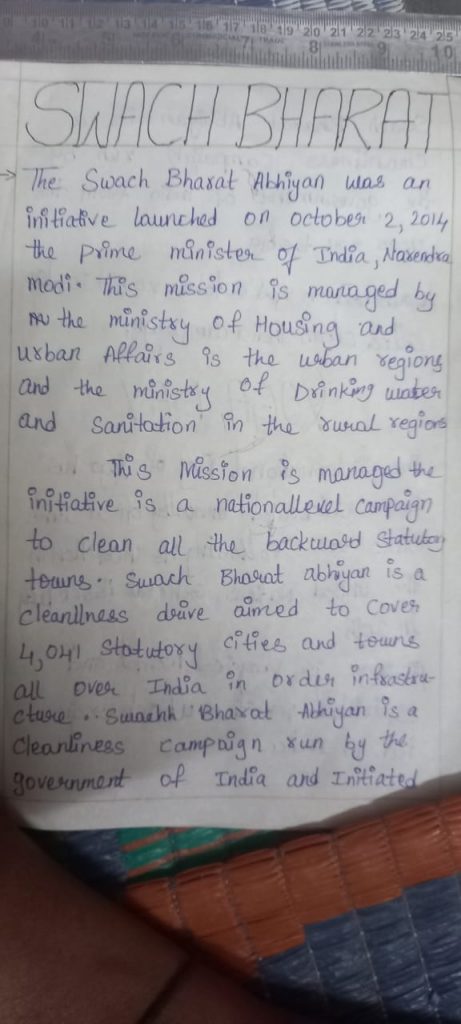 10 11 12 13 14 15 16 17 18 19 20 21 22 23 24 25
4 5 6 7 8 9 10
SWACH BHARAT
→ The Swach Bharat Abhiyan was an
initiative launched on october 2, 2014
the prime minister of India, Narendra
modi. This mission is managed by
the ministry of Housing and
urban Affairs is the urban regions
and the ministry of Drinking water
and sanitation in the rural regions
This Mission is managed the
initiative is a nationallevel campaign
to clean all the backward statutory
towns. Swach Bharat abhiyan is a
cleanllness drive aimed to cover
4,041 statutory cities and towns
all over India in order infrastru-
cture. Swachh Bharat Abhiyan is a
Cleanliness campaign run by the
government of India and Initiated